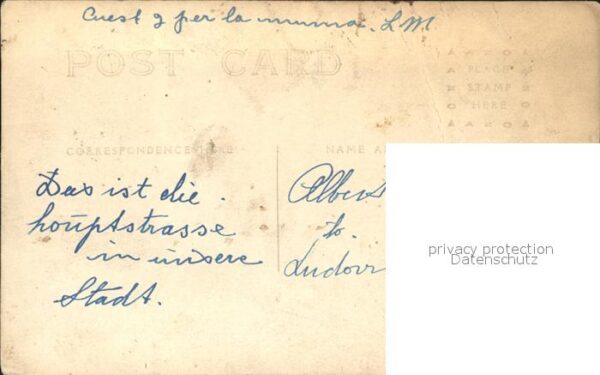 Cuest q per la mumma. L M
POST CARD
PLACE
STAMP
HERE
CORRESPONDENCE HERE
NAME A
Das ist die
houptstrasse
in unsere
Stadt.
Albert
to.
Ludovi
privacy protection
Datenschutz